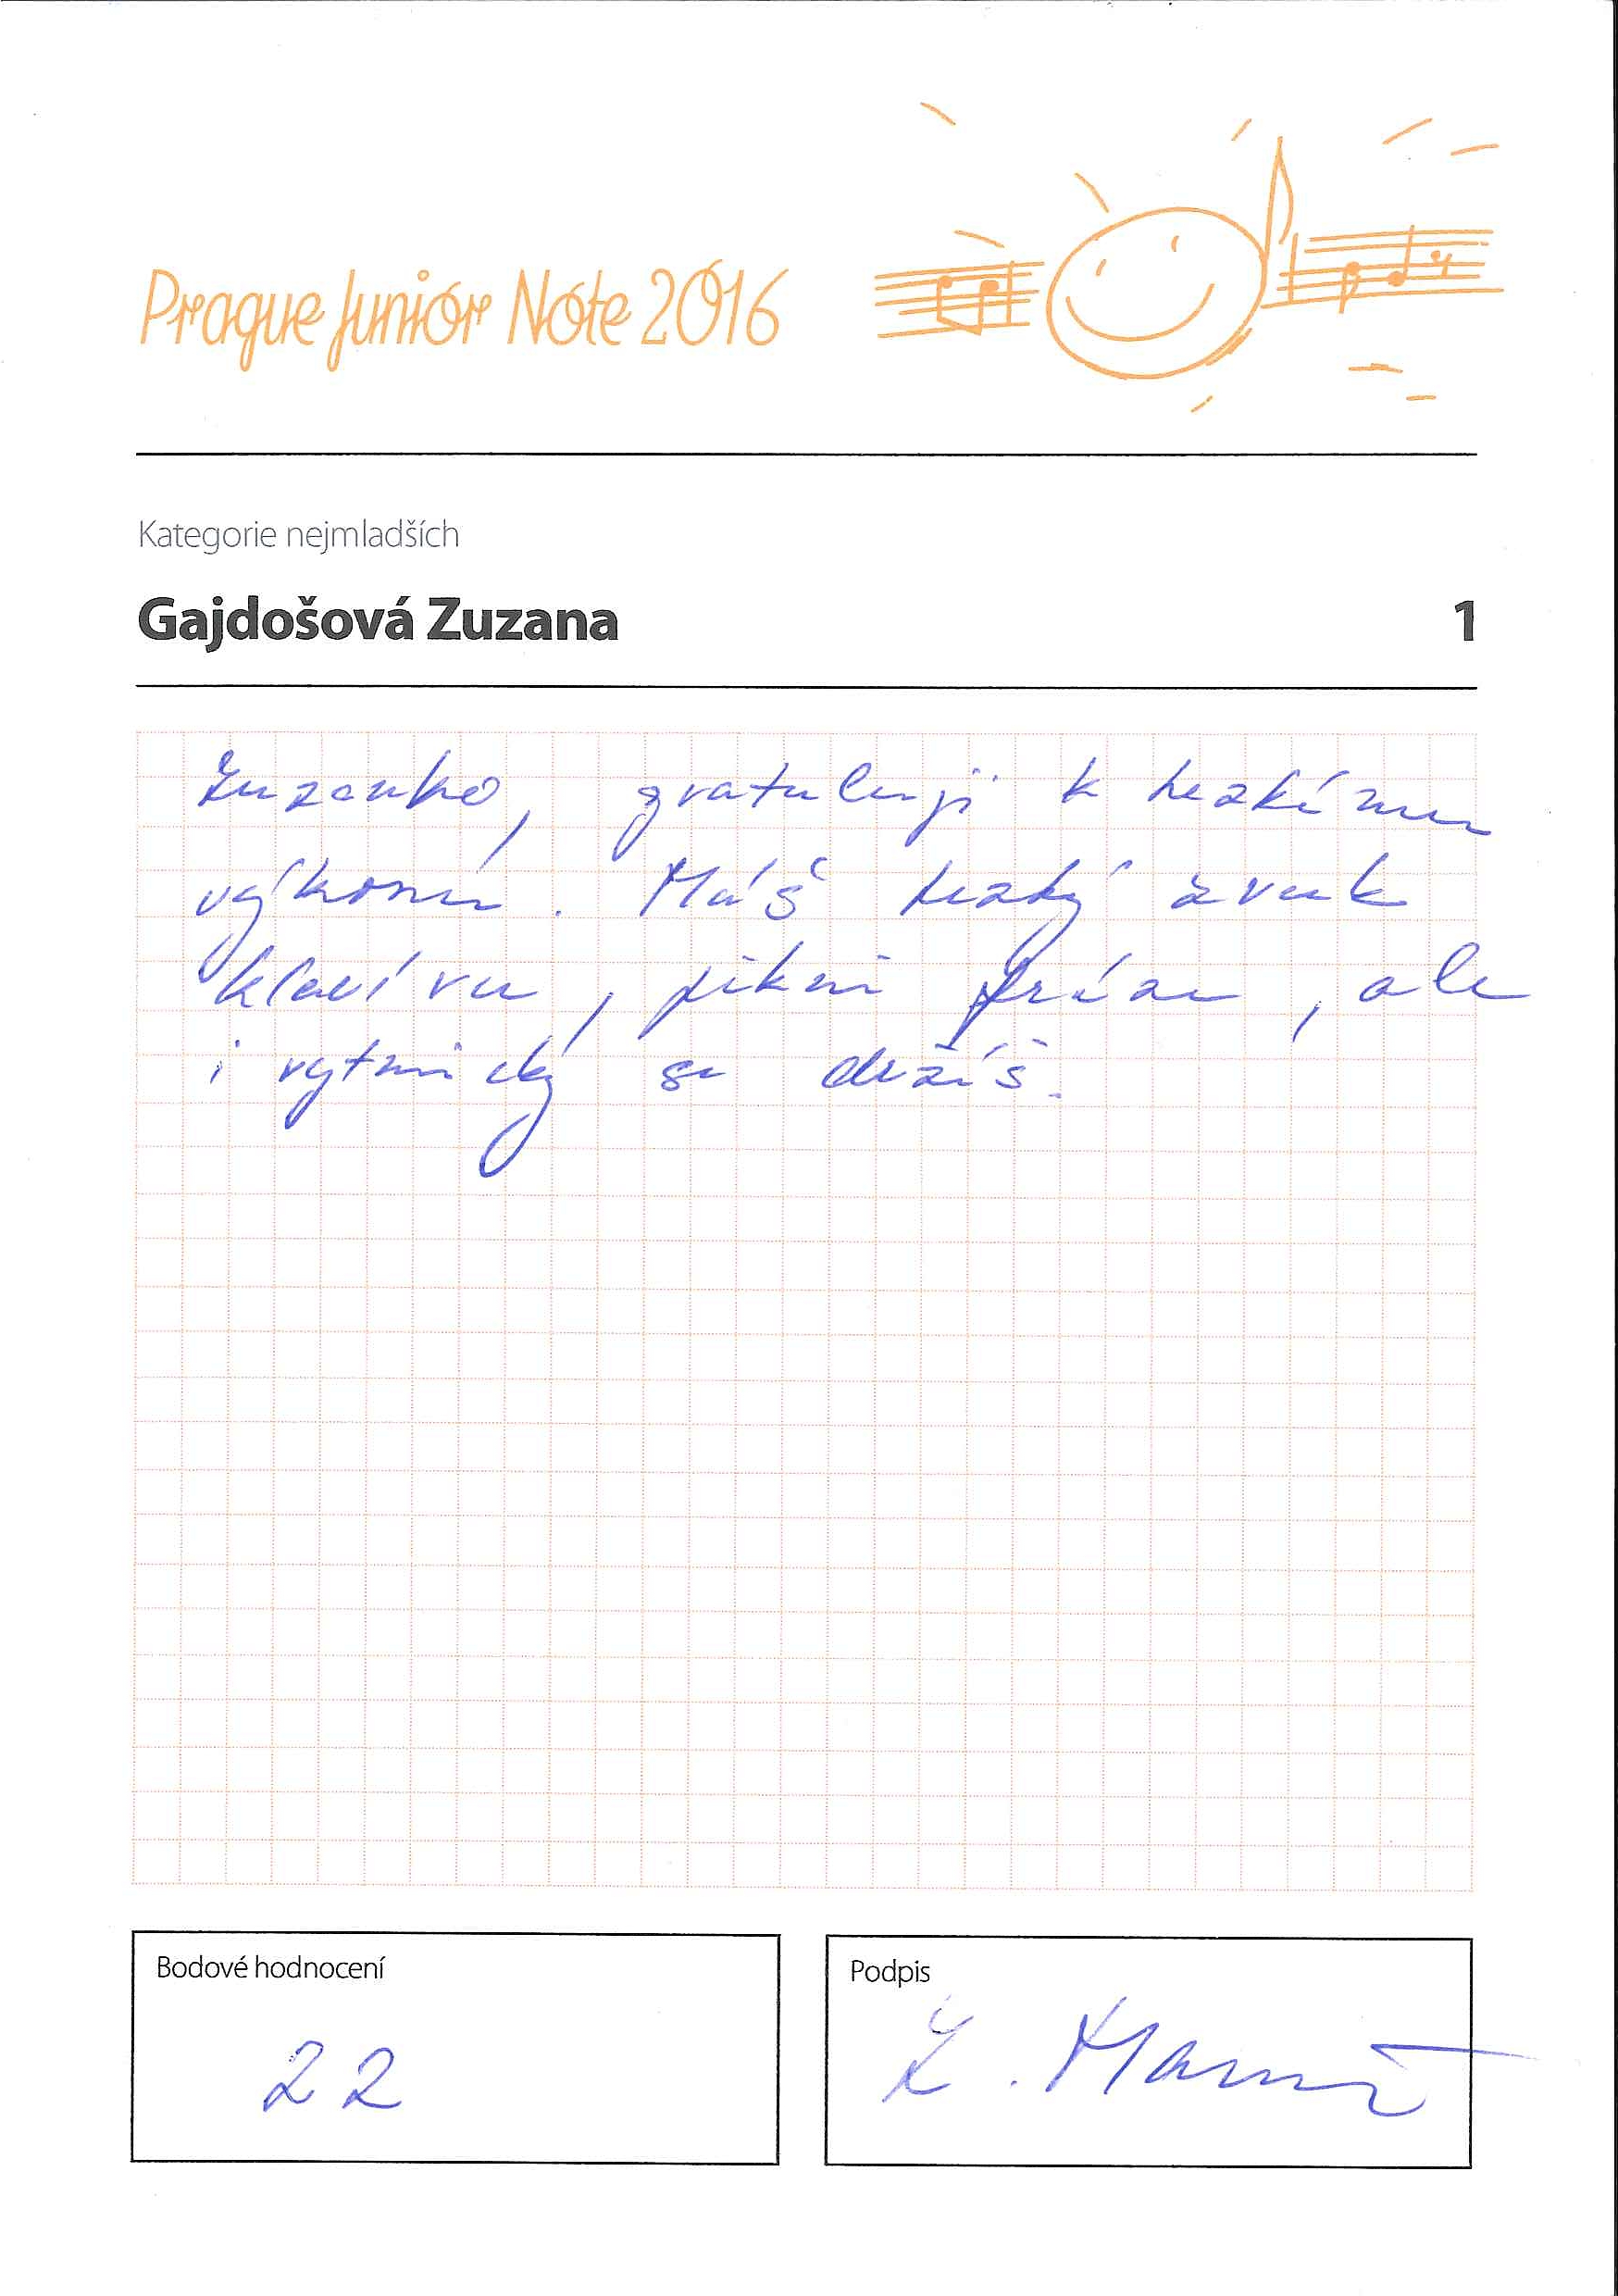 Prague Junior Note 2016
Kategorie nejmladších
Gajdošová Zuzana 1
Zuzanko, gratuluji k hezkému
výkonu. Máš hezký zvuk
klavíru, pěkné fráze, ale
i rytmicky se držíš.
Bodové hodnocení
22
Podpis
Z.